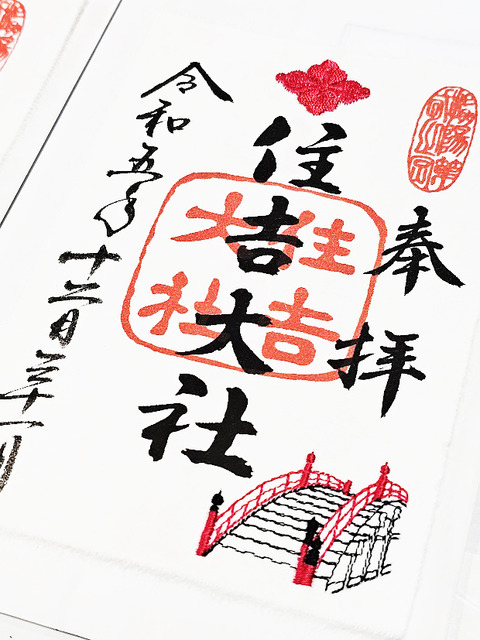 奉拝
住吉大社
住吉
大社
令和五年十二月三十一日